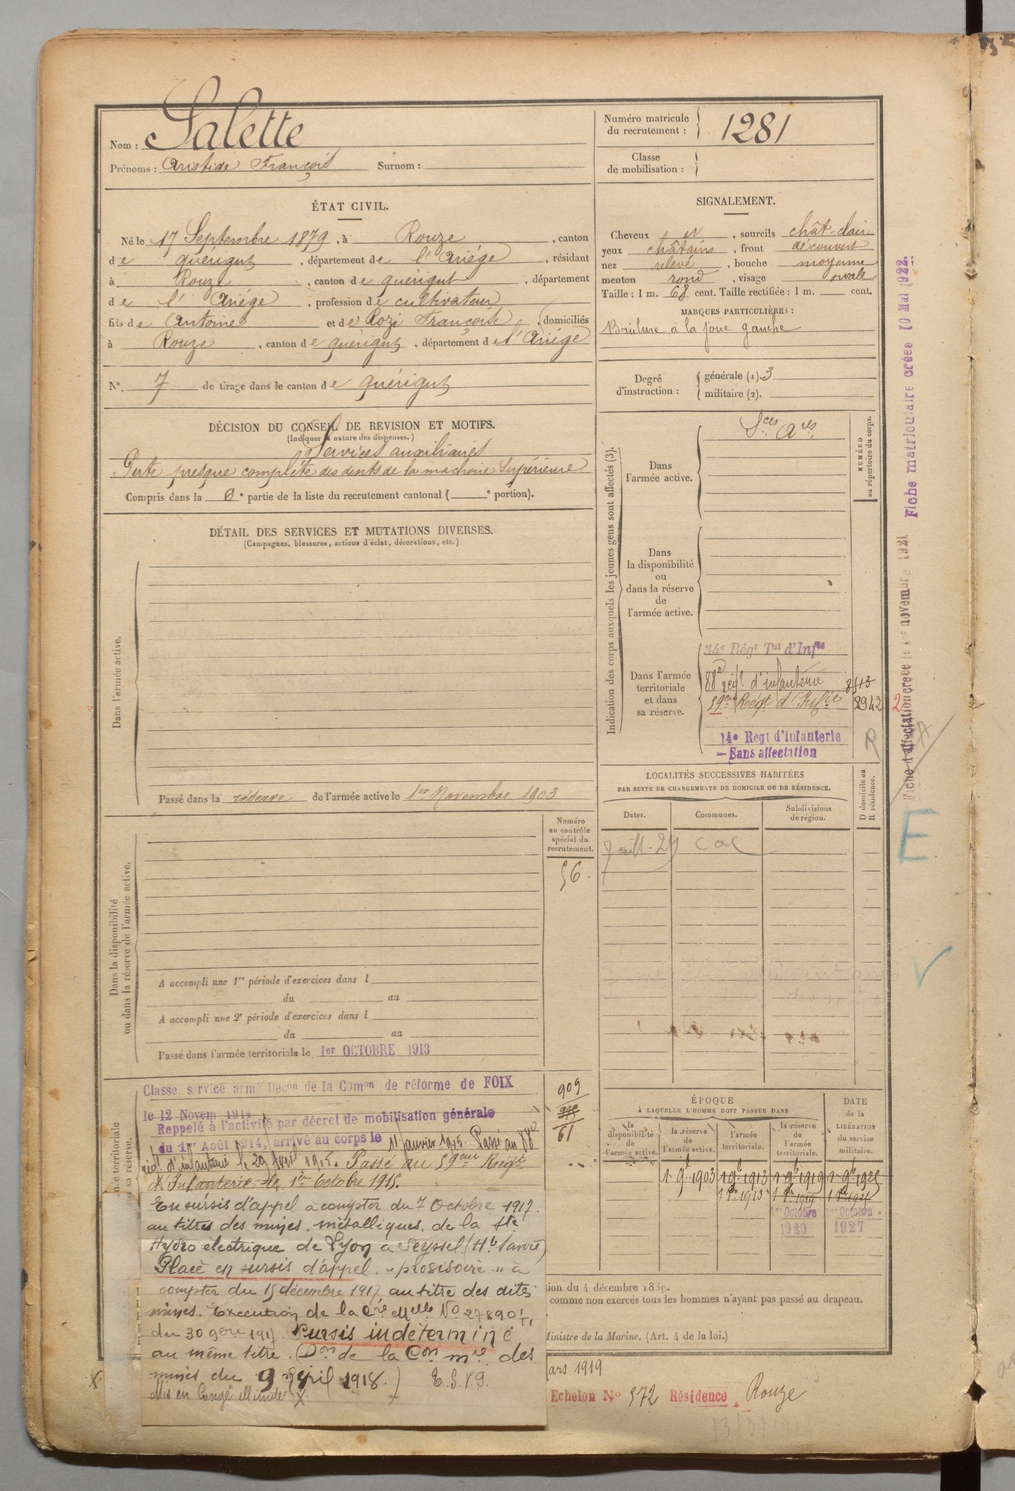 Nom : Salette
Prénoms : Aristide François Surnom :
ÉTAT CIVIL.
Né le 17 Septembre 1879, à Rouze, canton
de quérigut, département de l'Ariége, résidant
à Rouze, canton de quérigut, département
de l'Ariége, profession de cultivateur
fils de Antoine et de Rozi Françoise, domiciliés
à Rouze, canton de quérigut, département de l'Ariége
N°. 7 de tirage dans le canton de quérigut
DÉCISION DU CONSEIL DE REVISION ET MOTIFS.
(Indiquer la nature des dispenses.)
Services auxiliaires
Perte presque complète des dents de la machoire Supérieure
Compris dans la 6e partie de la liste du recrutement cantonal ( e portion).
DÉTAIL DES SERVICES ET MUTATIONS DIVERSES.
(Campagnes, blessures, actions d'éclat, décorations, etc.)
Dans l'armée active.
Passé dans la réserve de l'armée active le 1er Novembre 1903
Numéro
au contrôle
spécial du
recrutement.
56.
Dans la disponibilité
ou dans la réserve de l'armée active.
A accompli une 1re période d'exercices dans l
du au
A accompli une 2e période d'exercices dans l
du au
Passé dans l'armée territoriale le 1er OCTOBRE 1913
909
61
Classé service armé Décon de la Comon de réforme de FOIX
le 12 Novem
Rappelé à l'activité par décret de mobilisation générale
du 1er Août 1914, arrivé au corps le 11 janvier 1915. Passé au 88e
régt d'infanterie le 29 1915. Passé au 59eme Regt
d'Infanterie le 1er Octobre 1915.
En sursis d'appel à compter du 7 Octobre 1917.
au titres des mines métalliques de la Sté
Hydro électrique de Lyon à Seyssel (Hte Savoie)
Placé en sursis d'appel "provisoire" à
compter du 15 décembre 1917 au titre des dites
mines. Exécution de la Cre Melle No 27890 1/11
du 30 9bre 1917. Sursis indéterminé
au même titre. (Don de la Con mre des
mines du 9 Avril 1918.)
Mis en Congé illimité
Numéro matricule
du recrutement : 1281
Classe
de mobilisation :
SIGNALEMENT.
Cheveux N, sourcils chât-clair
yeux châtains, front découvert
nez relevé, bouche moyenne
menton rond, visage ovale
Taille : 1 m. 68 cent. Taille rectifiée : 1 m. cent.
MARQUES PARTICULIÈRES :
Brûlure à la joue gauche
Degré
d'instruction :
générale (1). 3
militaire (2).
Indication des corps auxquels les jeunes gens sont affectés (3).
NUMÉRO
au répertoire du corps.
Sces Ares
Dans
l'armée active.
Dans
la disponibilité
ou
dans la réserve
de
l'armée active.
Dans l'armée
territoriale
et dans
sa réserve.
34e Régt Tal d'Infie
88e régt d'infanterie
59eme Régt d'Infie 8942
14e Regt d'Infanterie
— Sans affectation
R
LOCALITÉS SUCCESSIVES HABITÉES
PAR SUITE DE CHANGEMENTS DE DOMICILE OU DE RÉSIDENCE.
Dates. Communes. Subdivisions
de région.
D domicile ou
R résidence.
ÉPOQUE
À LAQUELLE L'HOMME DOIT PASSER DANS
DATE
de la
LIBÉRATION
du service
militaire.
la
disponibilité
de
l'armée active.
la réserve
de
l'armée active.
l'armée
territoriale.
la réserve
de
l'armée
territoriale.
1 9b 1903 1 9b 1913 1 9b 1919
1 8bre 1913 1 8bre 1919
1er Octobre
1920
1er Octobre
1927
tion du 4 décembre 1889.
comme non exercés tous les hommes n'ayant pas passé au drapeau.
Ministre de la Marine. (Art. 4 de la loi.)
ars 1919
Echelon No 572 Résidence Rouze
Fiche d'affectation créée le 1er novembre 1921 Fiche matriculaire créée 10 Mai 1922.
E